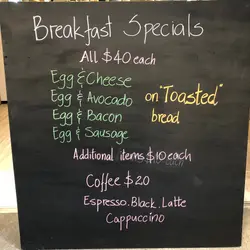 Breakfast Specials
All $40 each
Egg & Cheese
Egg & Avocado
Egg & Bacon
Egg & Sausage
on "Toasted"
bread
Additional items $10 each
Coffee $20
Espresso. Black. Latte
Cappuccino